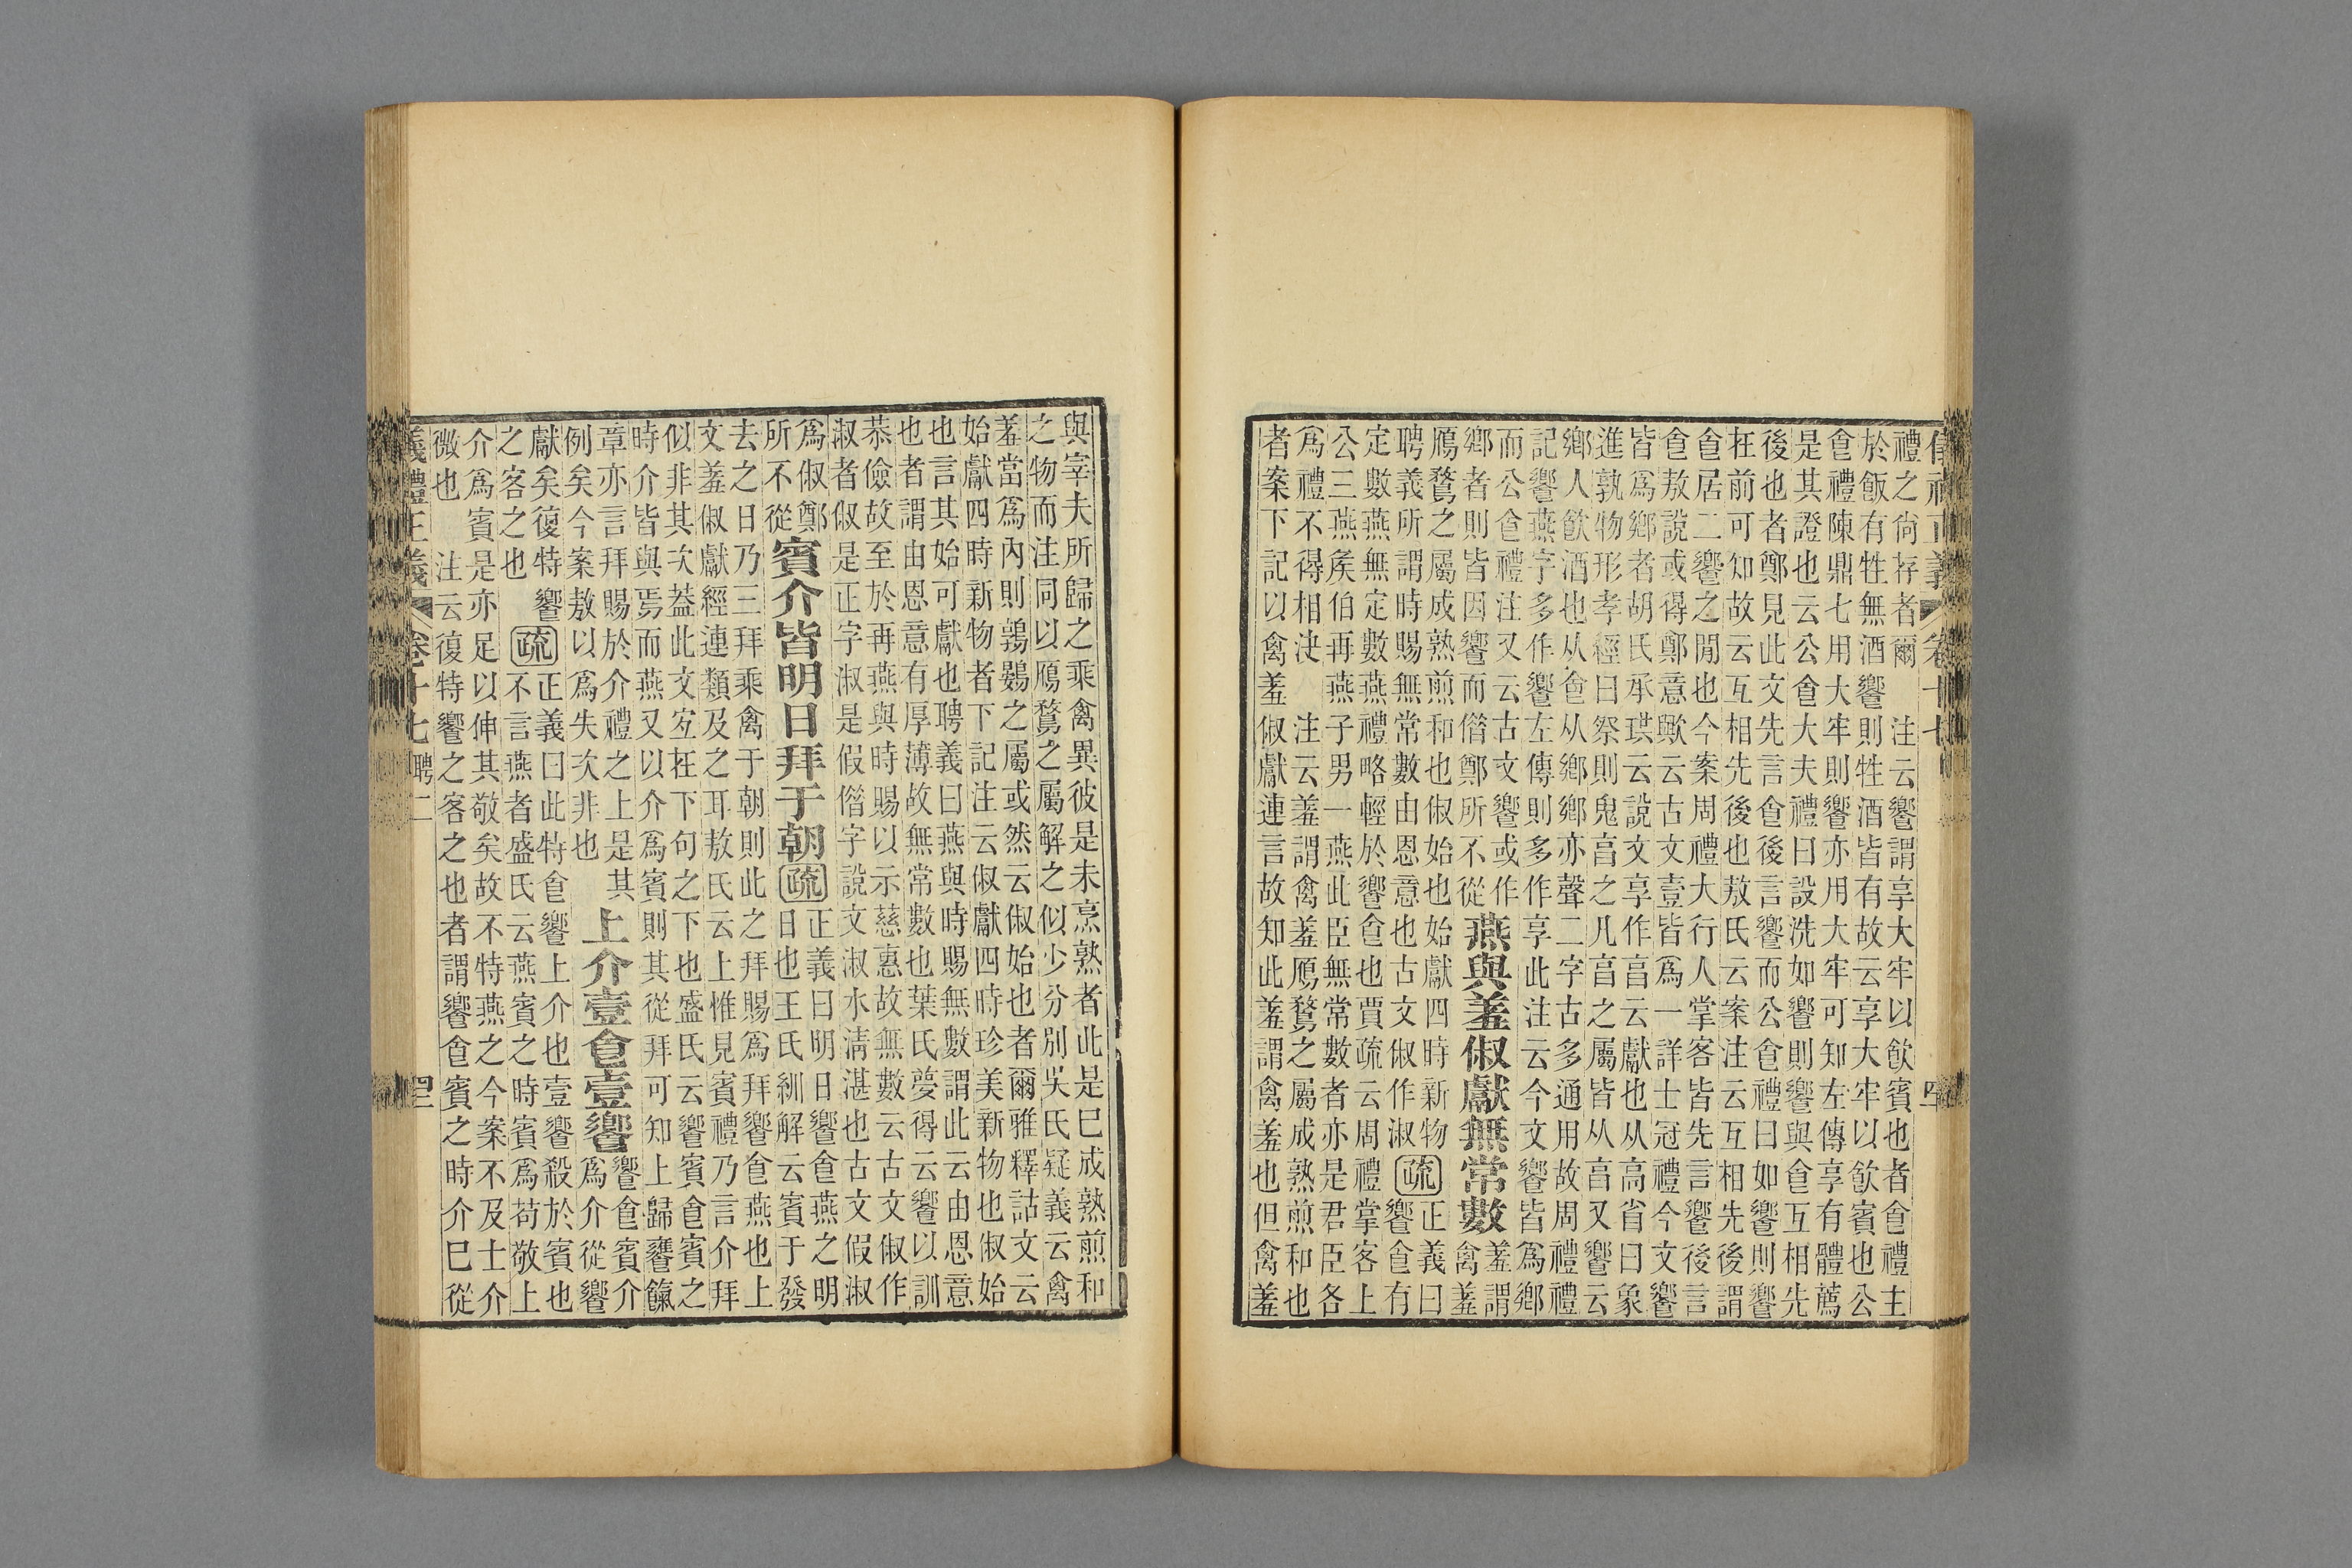 禮之尙存者爾　注云饗謂享大牢以飮賓也者食禮主
於飯有牲無酒饗則牲酒皆有故云享大牢以飮賓也公
食禮陳鼎七用大牢則饗亦用大牢可知左傳享有體薦
是其證也云公食大夫禮曰設洗如饗則饗與食互相先
後也者鄭見此文先言食後言饗而公食禮曰如饗則饗
在前可知故云互相先後也敖氏云案注云互相先後謂
食居二饗之閒也今案周禮大行人掌客皆先言饗後言
食敖說或得鄭意歟云古文壹皆爲一詳士冠禮今文饗
皆爲鄉者胡氏承珙云說文享作亯云獻也从高省曰象
進孰物形孝經曰祭則鬼亯之凡亯之屬皆从亯又饗云
鄉人飮酒也从食从鄉鄉亦聲二字古多通用故周禮禮
記饗燕字多作饗左傳則多作享此注云今文饗皆爲鄉
而公食禮注又云古文饗或作
鄉者則皆因饗而借鄭所不從
燕與羞俶獻無常數
羞謂
禽羞
鴈鶩之屬成熟煎和也俶始也始獻四時新物
聘義所謂時賜無常數由恩意也古文俶作淑
疏
正義曰
饗食有
定數燕無定數燕禮略輕於饗食也賈疏云周禮掌客上
公三燕矦伯再燕子男一燕此臣無常數者亦是君臣各
爲禮不得相決　注云羞謂禽羞鴈鶩之屬成熟煎和也
者案下記以禽羞俶獻連言故知此羞謂禽羞也但禽羞
與宰夫所歸之乘禽異彼是未烹熟者此是已成熟煎和
之物而注同以鴈鶩之屬解之似少分別吳氏疑義云禽
羞當爲內則鶉鷃之屬或然云俶始也者爾雅釋詁文云
始獻四時新物者下記注云俶獻四時珍美新物也俶始
也言其始可獻也聘義曰燕與時賜無數謂此云由恩意
也者謂由恩意有厚薄故無常數也葉氏夢得云饗以訓
恭儉故至於再燕與時賜以示慈惠故無數云古文俶作
淑者俶是正字淑是假借字說文淑水淸湛也古文假淑
爲俶鄭
所不從
賓介皆明日拜于朝
疏
正義曰明日饗食燕之明
日也王氏紃解云賓于發
去之日乃三拜乘禽于朝則此之拜賜爲拜饗食燕也上
文羞俶獻經連類及之耳敖氏云上惟見賓禮乃言介拜
似非其次葢此文宜在下句之下也盛氏云饗賓食賓之
時介皆與焉而燕又以介爲賓則其從拜可知上歸饔餼
章亦言拜賜於介禮之上是其
例矣今案敖以爲失次非也
上介壹食壹饗
饗食賓介
爲介從饗
獻矣復特饗
之客之也
疏
正義曰此特食饗上介也壹饗殺於賓也
不言燕者盛氏云燕賓之時賓爲苟敬上
介爲賓是亦足以伸其敬矣故不特燕之今案不及士介
微也　注云復特饗之客之也者謂饗食賓之時介已從
卷十七聘二